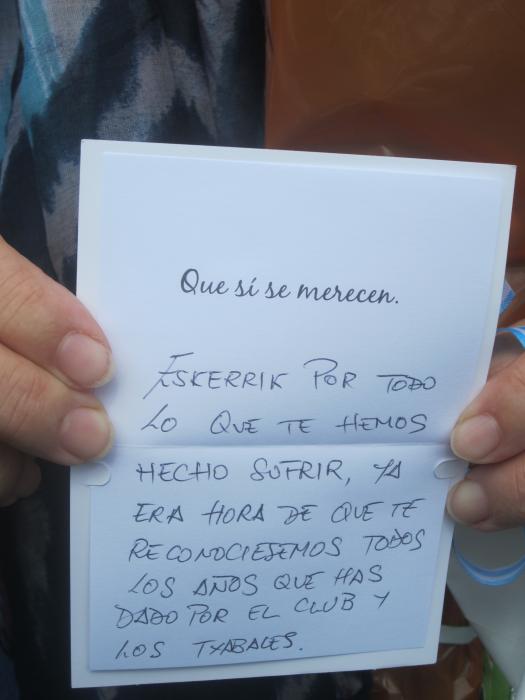 Que sí se merecen.
ESKERRIK POR TODO
LO QUE TE HEMOS
HECHO SUFRIR, YA
ERA HORA DE QUE TE
RECONOCIESEMOS TODOS
LOS AÑOS QUE HAS
DADO POR EL CLUB Y
LOS TXABALES.